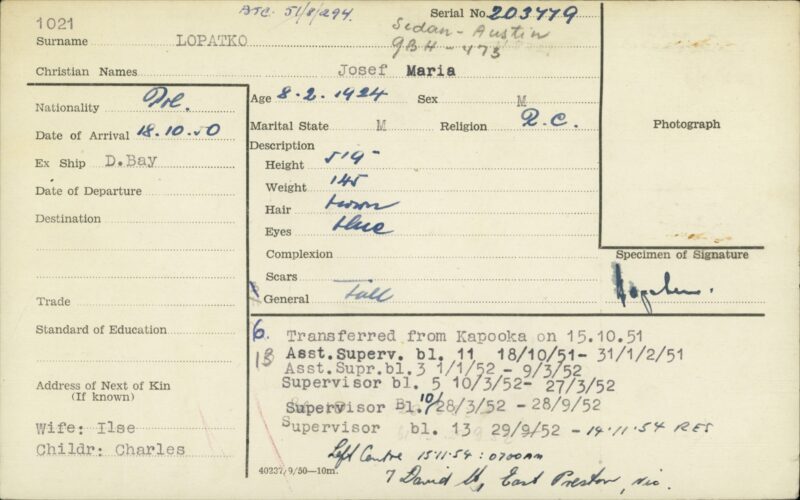 BTC. 51/8/294.
Serial No. 203479
1021
Surname LOPATKO
Sedan - Austin
GBH - 473
Christian Names Josef Maria
Nationality Pol.
Age 8.2.1924 Sex M
Date of Arrival 18.10.50
Marital State M Religion R.C.
Photograph
Ex Ship D.Bay
Description
Height 5'9"
Date of Departure
Weight 145
Destination
Hair brown
Eyes blue
Complexion
Specimen of Signature
Scars
Trade
General Tall
Standard of Education
6. Transferred from Kapooka on 15.10.51
13 Asst.Superv. bl. 11 18/10/51- 31/1/2/51
Asst.Supr.bl.3 1/1/52 - 9/3/52
Supervisor bl. 5 10/3/52- 27/3/52
Address of Next of Kin
(If known)
Supervisor Bl. 10/ 28/3/52 - 28/9/52
Wife: Ilse
Supervisor bl. 13 29/9/52 - 14.11.54 RES
Childr: Charles
Left Centre 15.11.54 : 0700am
40237/9/50—10m.
7 David St, East Preston, Vic.